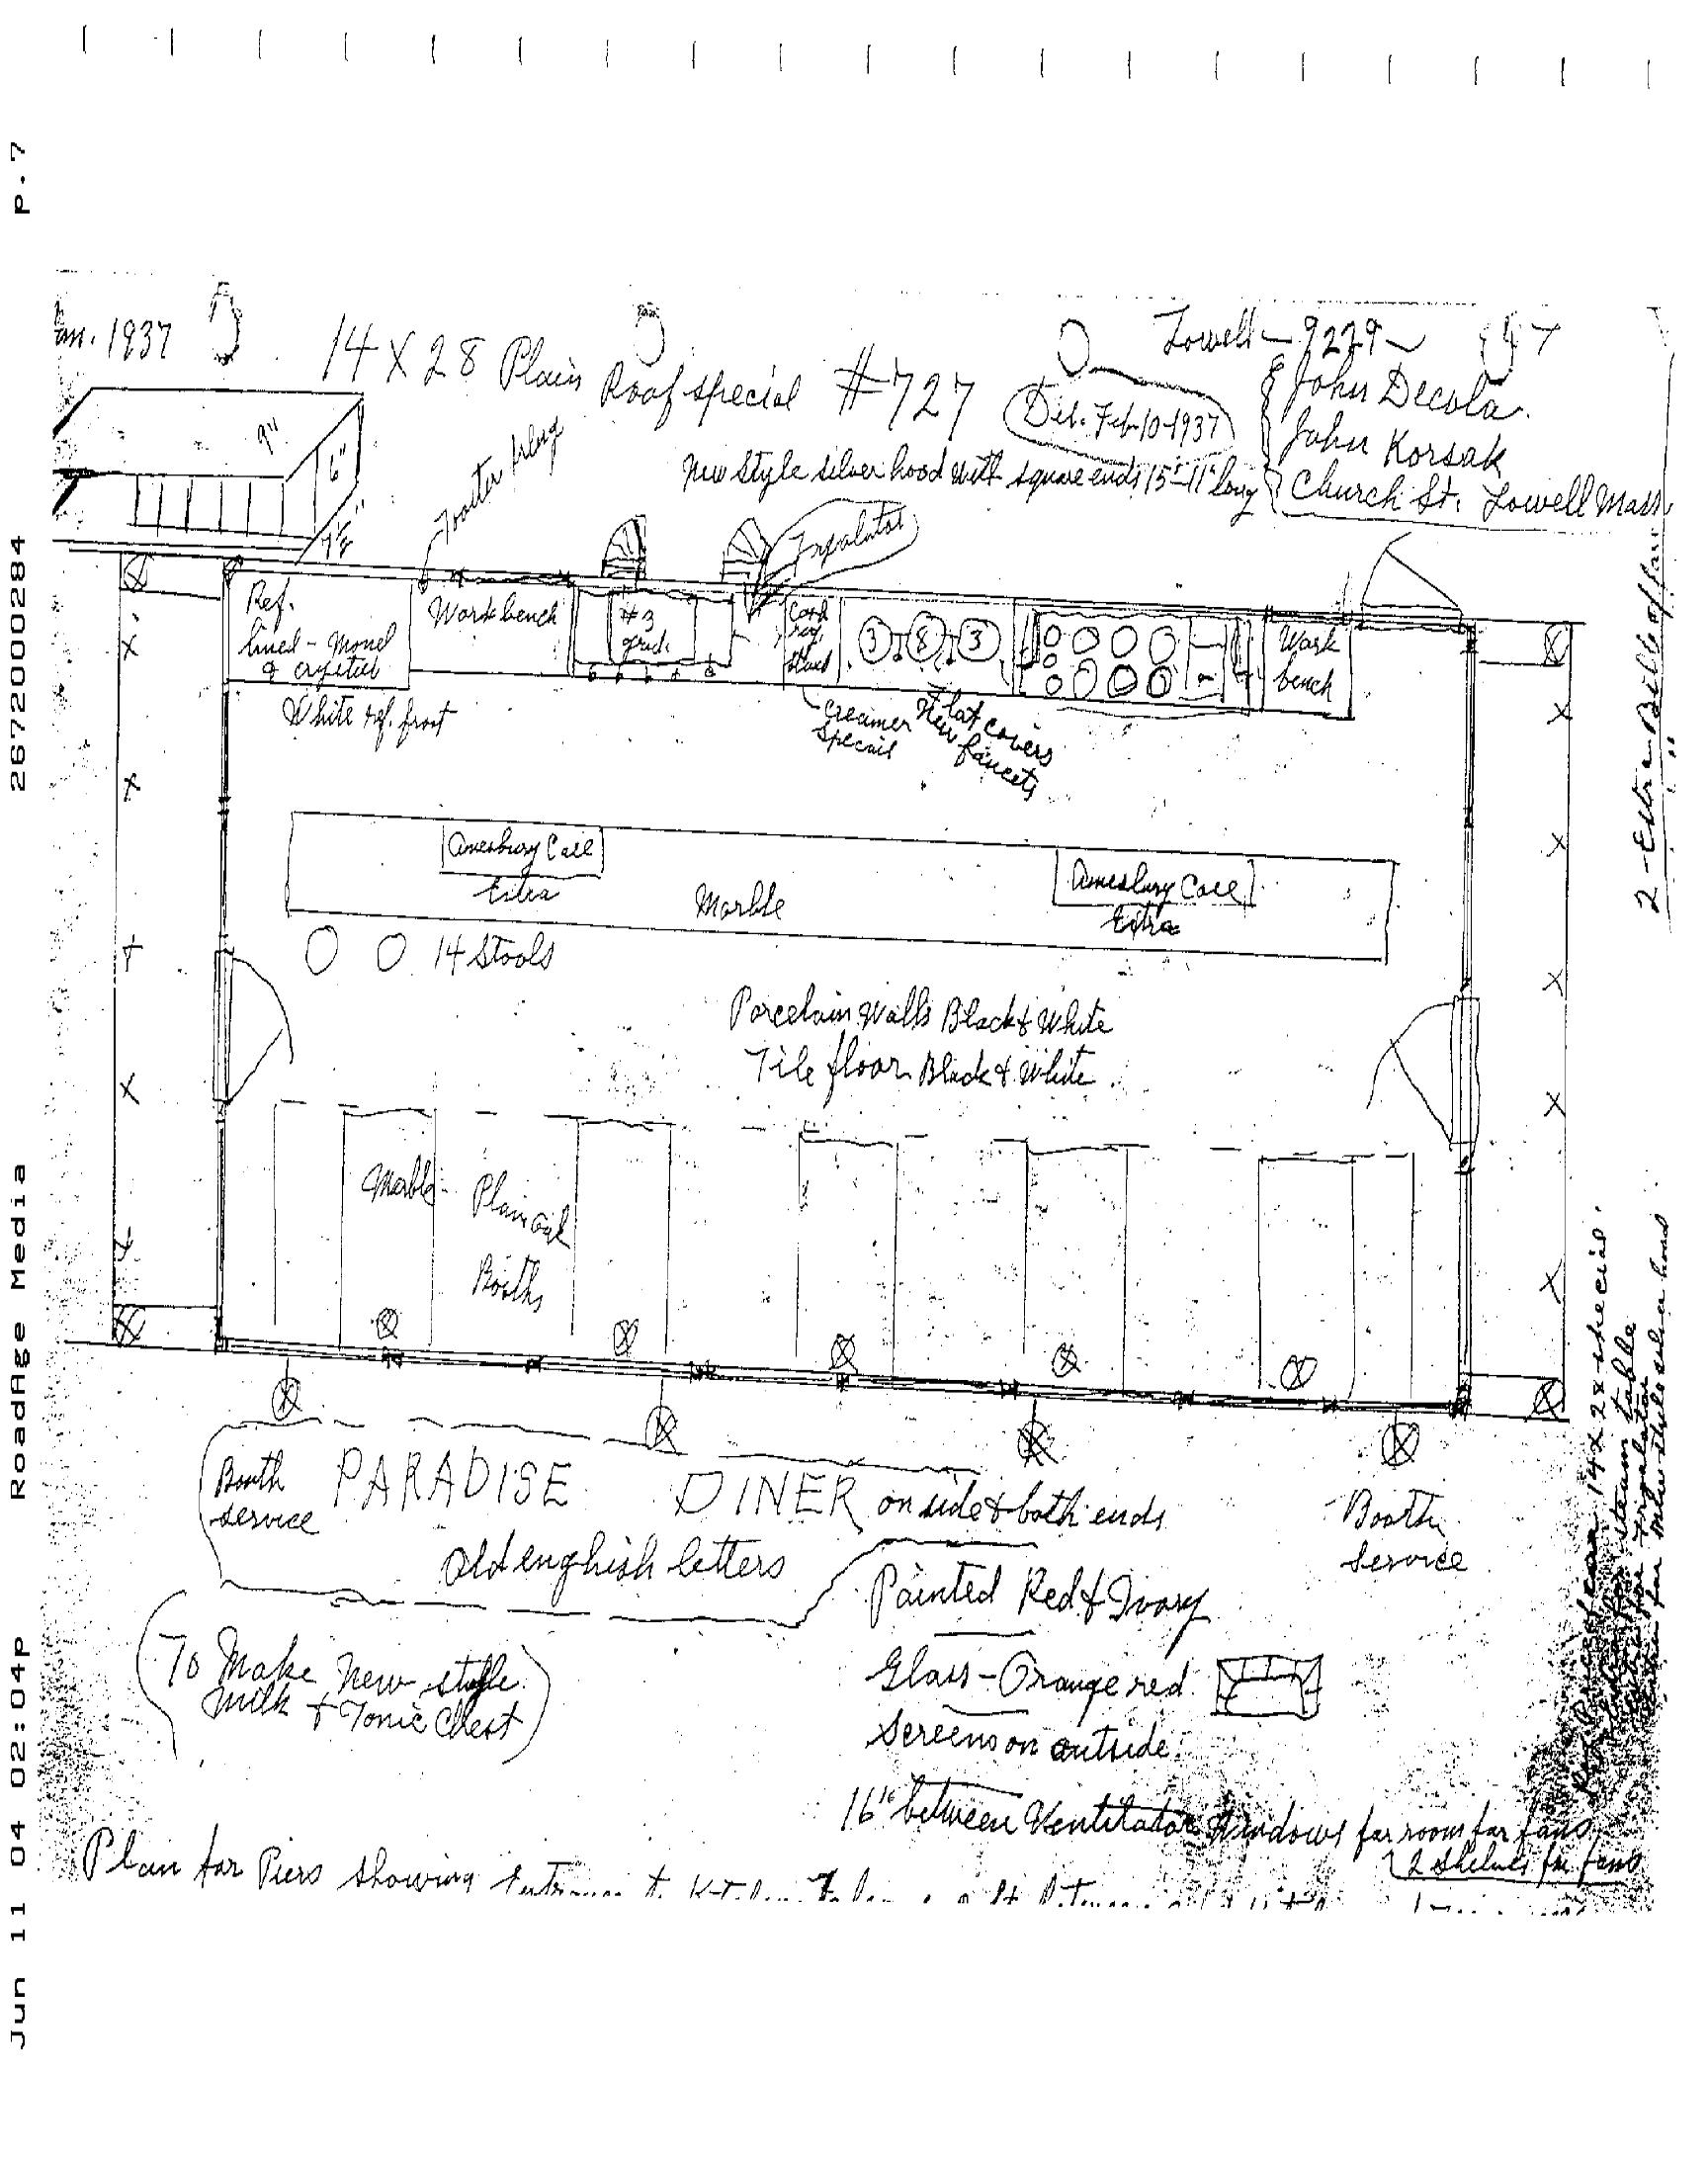 P.7
2672000284
RoadAge Media
Jun 11 04 02:04p
Jan. 1937
14 X 28 Plain Roof special #727
Del. Feb-10-1937
Lowell - 9229
John Decola
John Korsak
Church St. Lowell Mass
New Style silver hood with square ends 15'-11" long
9"
6"
Ref.
lined - Monel
& crystal
White ref. front
Work bench
#3
grid.
stand
3 8 3
Work
bench
creamer
special
Flat covers
New faucets
Amesbury Case
Extra
Marble
Amesbury Case
Extra
14 Stools
Porcelain Walls Black & White
Tile floor Black & White
Marble
Plain oak
Booths
Booth
service
PARADISE DINER on side & both ends
Old english letters
Booth
Service
Painted Red & Ivory
Glass - Orange red
Screens on outside
To Make New style
Milk & Tonic Chest
16" between Ventilator Windows for room for fans
2 shelves for fans
Plan for Piers showing
2 - Extra Bill of fare
14 x 28 special.
steam table